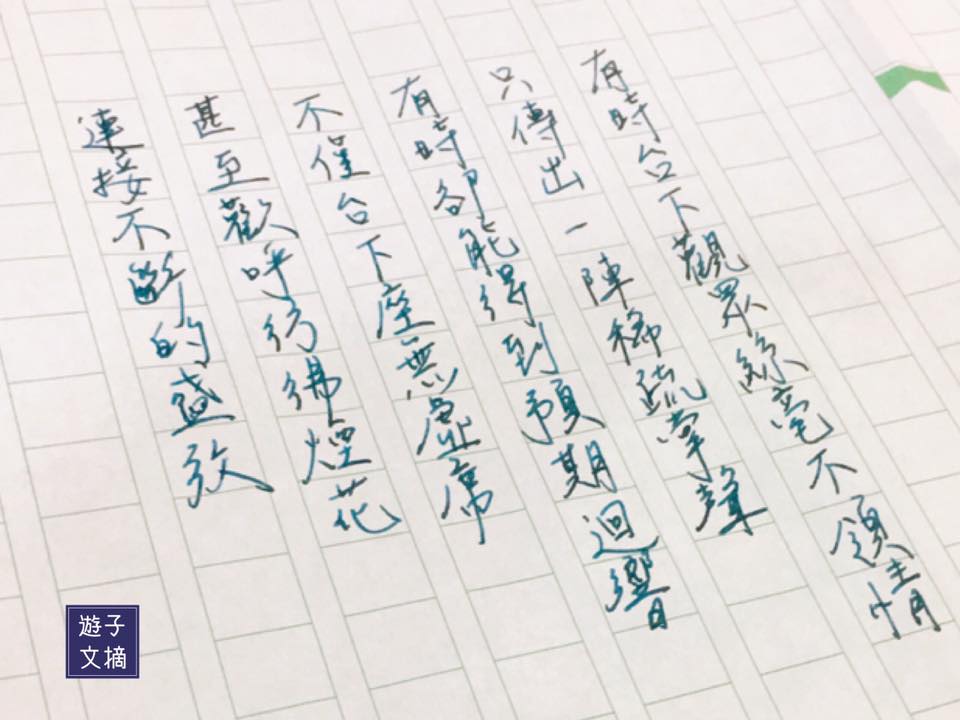 有時台下觀眾絲毫不領情
只傳出一陣稀疏掌聲
有時卻能得到預期迴響
不僅台下座無虛席
甚至歡呼彷彿煙花
連接不斷的盛放
遊子
文摘